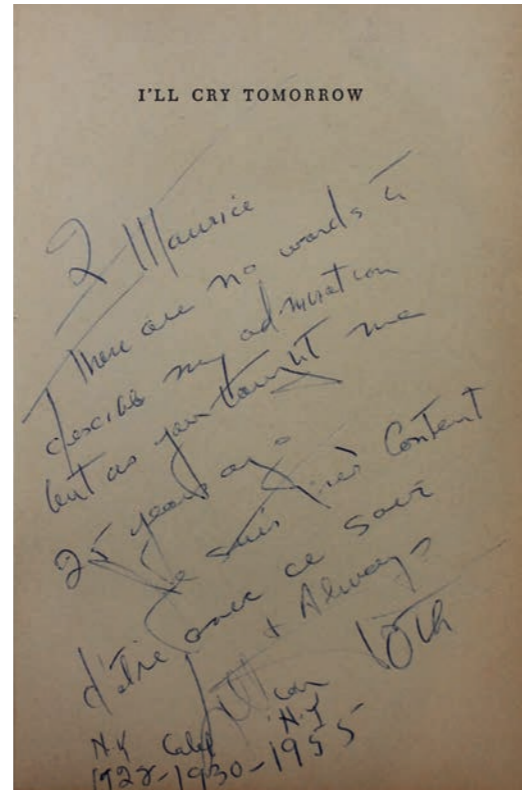 I'LL CRY TOMORROW
2 Maurice
There are no words to
describe my admiration
but as you taught me
25 years ago
Je suis très Content
d'être avec ce soir
+ Always
Lillian Roth
N.Y. Calif N.Y
1928-1930-1955